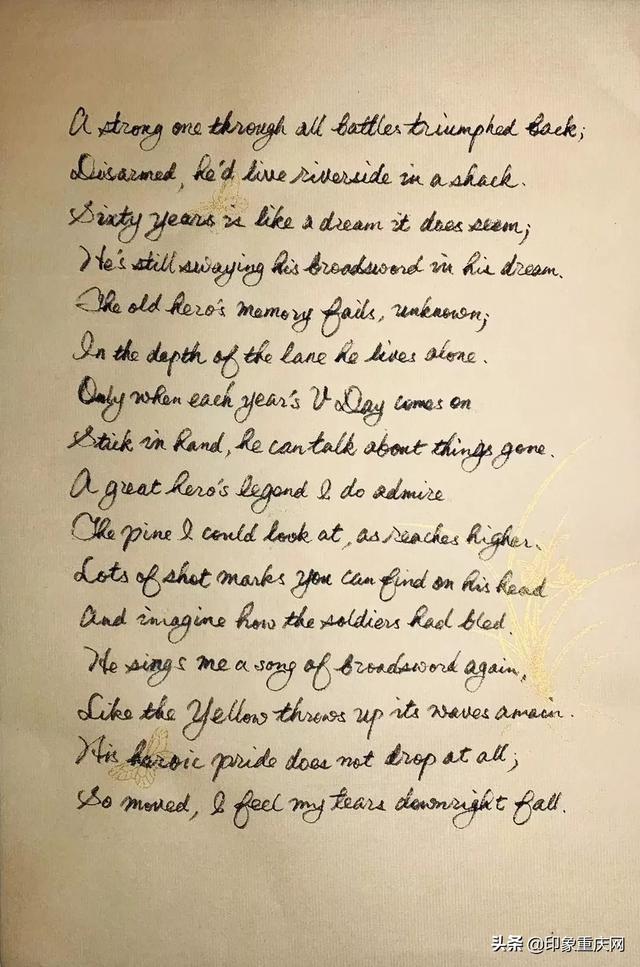 A strong one through all battles triumphed back;
Disarmed, he'd live riverside in a shack.
Sixty years is like a dream it does seem;
He's still swaying his broadsword in his dream.
The old hero's memory fails, unknown;
In the depth of the lane he lives alone.
Only when each year's V Day comes on
Stick in hand, he can talk about things gone.
A great hero's legend I do admire
The pine I could look at, as reaches higher.
Lots of shot marks you can find on his head
And imagine how the soldiers had bled.
He sings me a song of broadsword again,
Like the Yellow throws up its waves amain.
His heroic pride does not drop at all;
So moved, I feel my tears downright fall.
头条 @印象重庆网